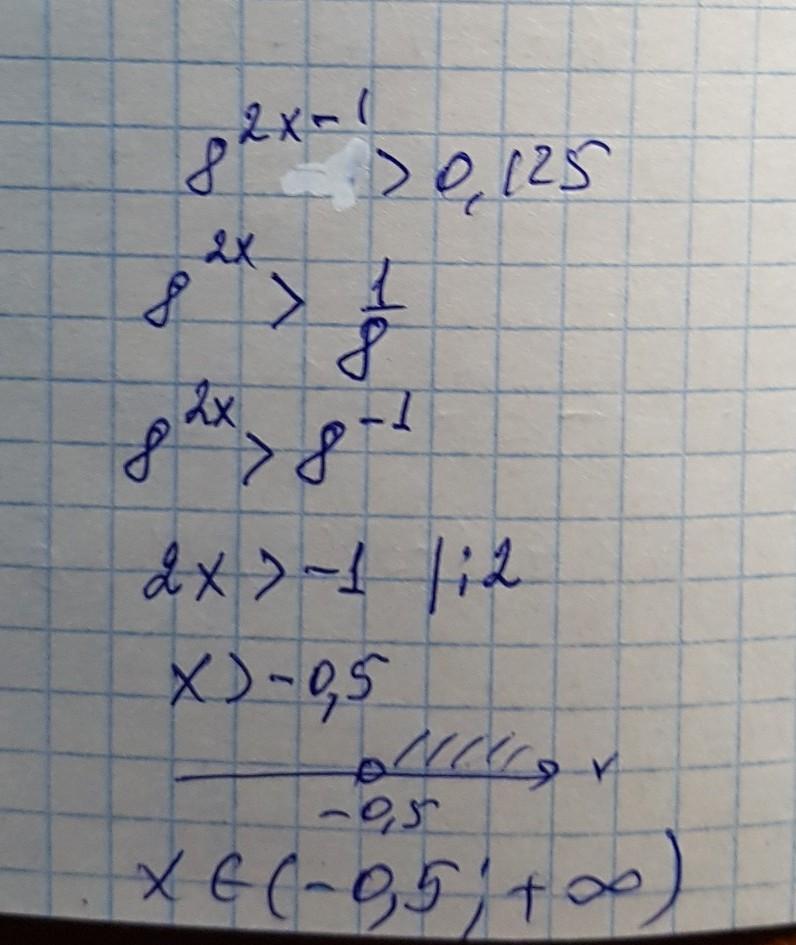 8^{2x-1} > 0,125
8^{2x} > \frac{1}{8}
8^{2x} > 8^{-1}
2x > -1 |:2
x > -0,5
-0,5 x
x ∈ (-0,5; +∞)